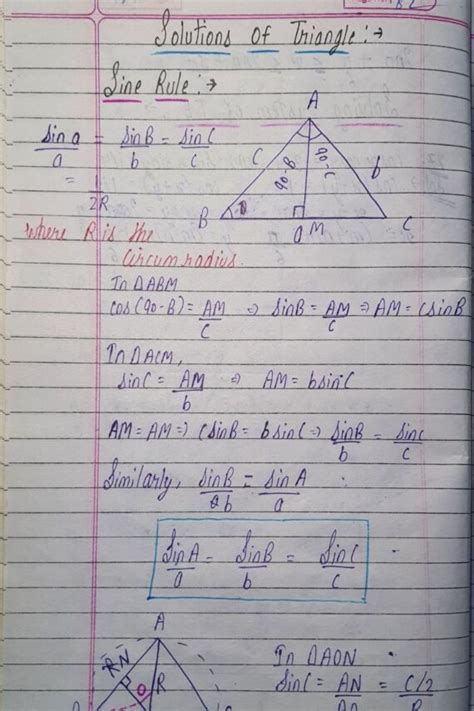 Solutions Of Triangle:→
Sine Rule:→
sin a/a = sinB/b = sinC/c
= 1/2R
A
c
90-B
90-C
b
B
M
C
a
where R is the
Circumradius.
In ΔABM
cos(90-B) = AM/c ⇒ sinB = AM/c ⇒ AM = c sinB
In ΔACM,
sinC = AM/b ⇒ AM = b sinC
AM = AM ⇒ c sinB = b sinC ⇒ sinB/b = sinC/c
Similarly, sinB/b = sinA/a
SinA/a = SinB/b = SinC/c
A
R
N
R
O
In ΔAON
SinC = AN = c/2